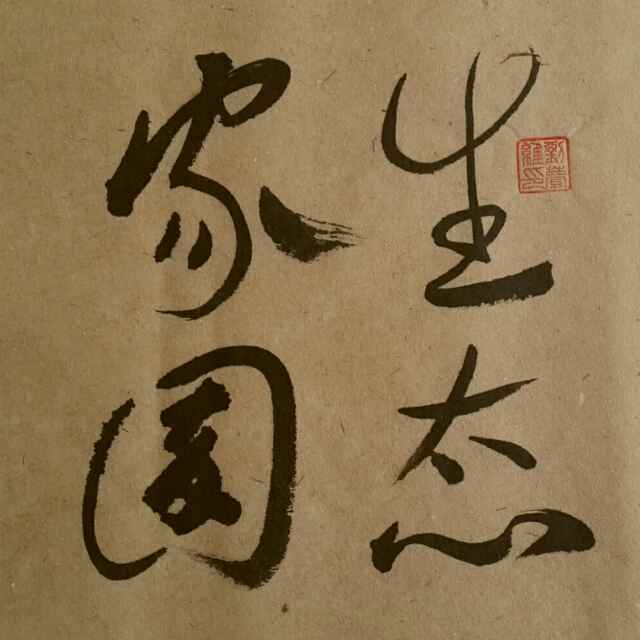 生态
家园